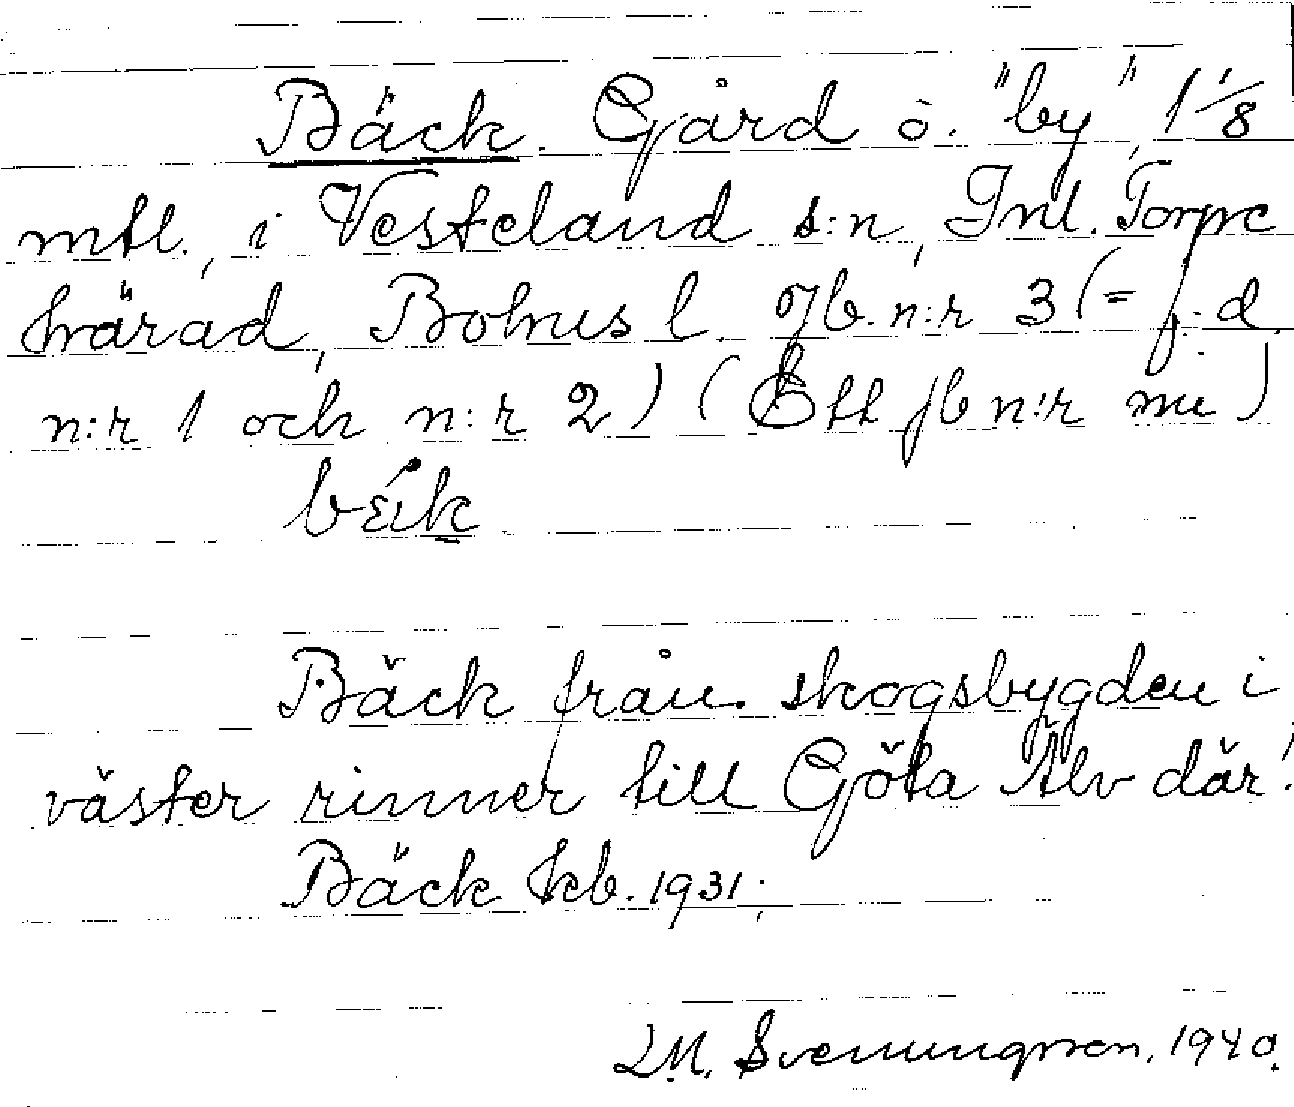 Bäck. Gård o. "by", 1 1/8
mtl., i Vesteland s:n, Inl. Torpe
härad, Bohus l. Jb. n:r 3 (= f. d.
n:r 1 och n:r 2) (Ett jb n:r nu)
bɛ́ik
Bäck från skogsbygden i
väster rinner till Göta Älv där!
Bäck kb. 1931.
L M. Svenungsson. 1940.